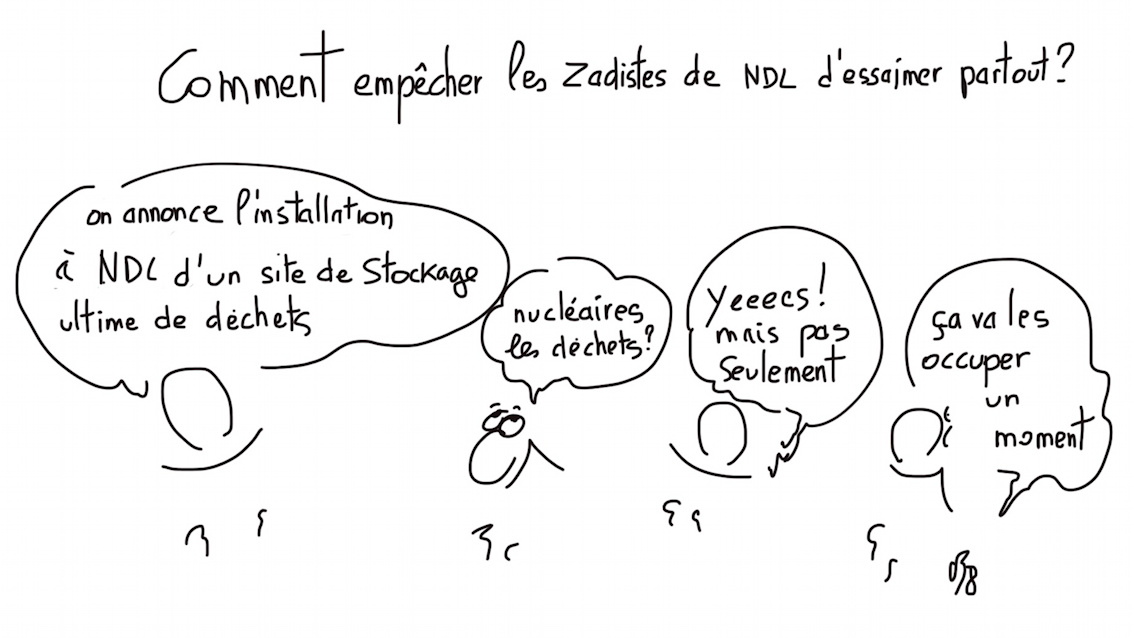 Comment empêcher les Zadistes de NDL d'essaimer partout?
on annonce l'installation
à NDL d'un site de Stockage
ultime de déchets
nucléaires
les déchets?
Yeeecs!
mais pas
Seulement
ça va les
occuper
un
moment